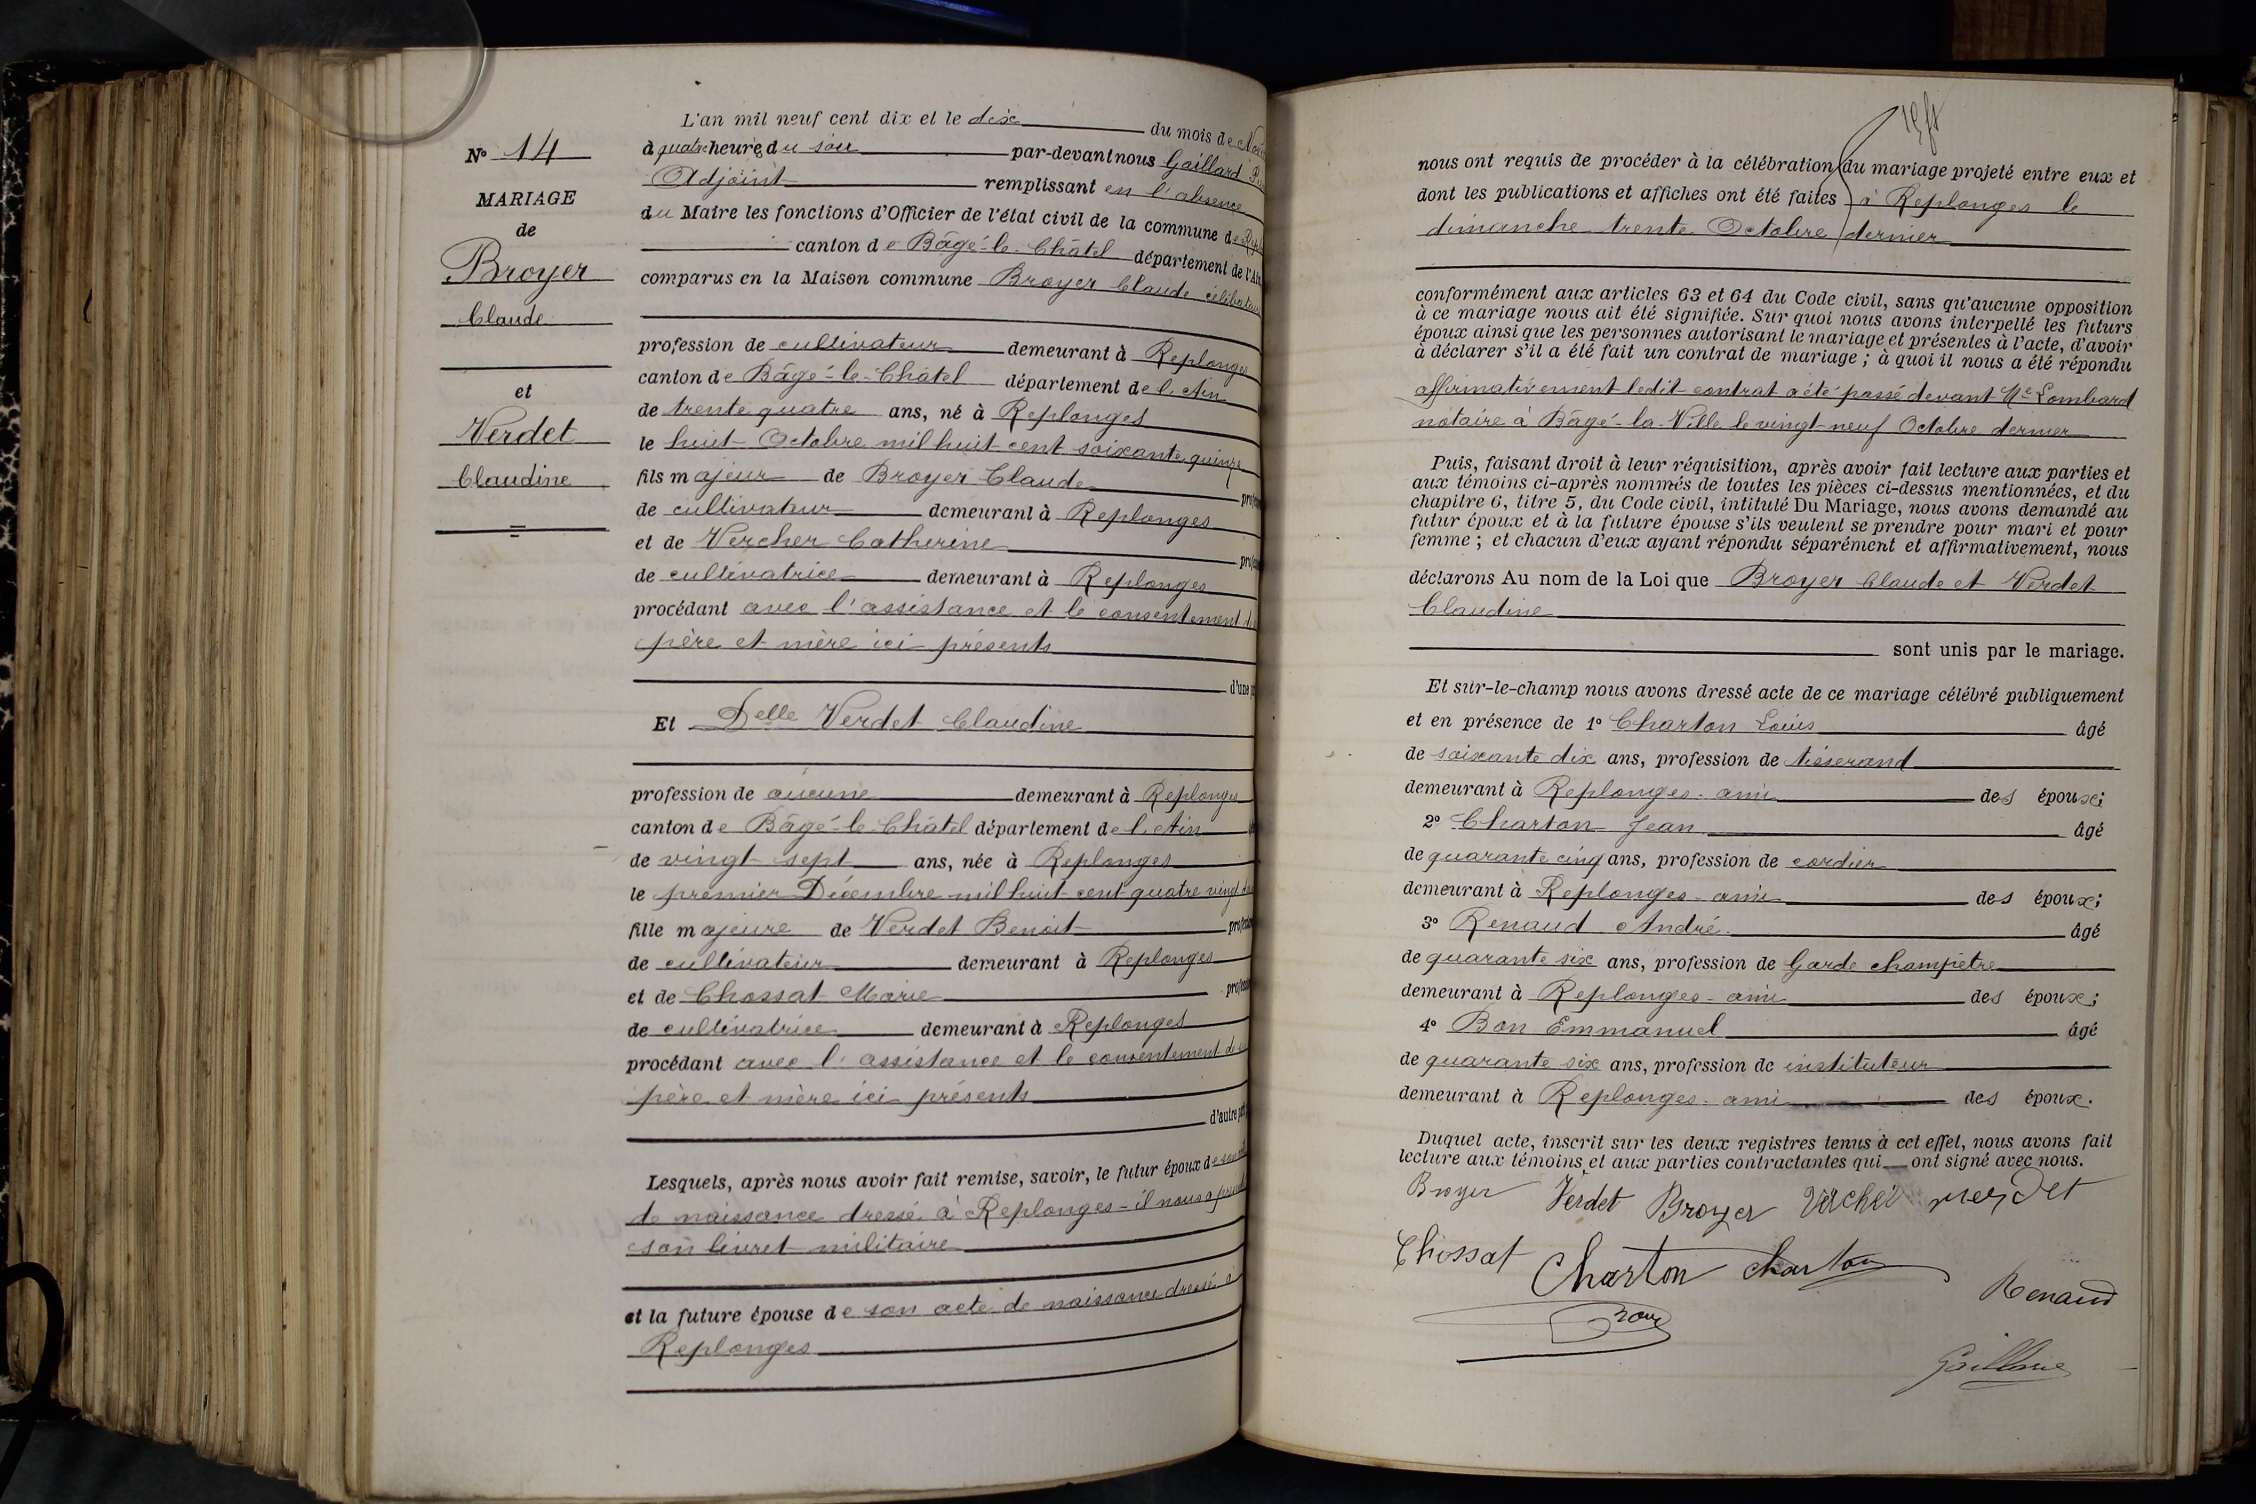 N° 14
MARIAGE
de
Broyer
Claude
et
Verdet
Claudine
L'an mil neuf cent dix et le dix du mois de
à quatre heures du soir par-devant nous Gaillard
Adjoint remplissant en l'absence
du Maire les fonctions d'Officier de l'état civil de la commune de
canton de Bâgé-le-Châtel département de l'Ain
comparus en la Maison commune Broyer Claude célibataire
profession de cultivateur demeurant à Replonges
canton de Bâgé-le-Châtel département de l'Ain
de trente quatre ans, né à Replonges
le huit Octobre mil huit cent soixante quinze
fils majeur de Broyer Claude
de cultivateur demeurant à Replonges
et de Vercher Catherine
de cultivatrice demeurant à Replonges
procédant avec l'assistance et le consentement
père et mère ici présents
d'une
Et Delle Verdet Claudine
profession de aucune demeurant à Replonges
canton de Bâgé-le-Châtel département de l'Ain
de vingt sept ans, née à Replonges
le premier Décembre mil huit cent quatre vingt
fille majeure de Verdet Benoit
de cultivateur demeurant à Replonges
et de Chossat Marie
de cultivatrice demeurant à Replonges
procédant avec l'assistance et le consentement de
père et mère ici présents
d'autre part
Lesquels, après nous avoir fait remise, savoir, le futur époux de son
de naissance dressé à Replonges - il nous a
son livret militaire
et la future épouse de son acte de naissance dressé à
Replonges
nous ont requis de procéder à la célébration du mariage projeté entre eux et
dont les publications et affiches ont été faites à Replonges le
dimanche trente Octobre dernier
conformément aux articles 63 et 64 du Code civil, sans qu'aucune opposition
à ce mariage nous ait été signifiée. Sur quoi nous avons interpellé les futurs
époux ainsi que les personnes autorisant le mariage et présentes à l'acte, d'avoir
à déclarer s'il a été fait un contrat de mariage ; à quoi il nous a été répondu
affirmativement ledit contrat a été passé devant Me Lombard
notaire à Bâgé-la-Ville le vingt-neuf Octobre dernier
Puis, faisant droit à leur réquisition, après avoir fait lecture aux parties et
aux témoins ci-après nommés de toutes les pièces ci-dessus mentionnées, et du
chapitre 6, titre 5, du Code civil, intitulé Du Mariage, nous avons demandé au
futur époux et à la future épouse s'ils veulent se prendre pour mari et pour
femme ; et chacun d'eux ayant répondu séparément et affirmativement, nous
déclarons Au nom de la Loi que Broyer Claude et Verdet
Claudine
sont unis par le mariage.
Et sur-le-champ nous avons dressé acte de ce mariage célébré publiquement
et en présence de 1° Charton Louis âgé
de soixante dix ans, profession de tisserand
demeurant à Replonges - ami des époux;
2° Charton Jean âgé
de quarante cinq ans, profession de cordier
demeurant à Replonges - ami des époux;
3° Renaud André âgé
de quarante six ans, profession de Garde champêtre
demeurant à Replonges - ami des époux;
4° Bon Emmanuel âgé
de quarante six ans, profession de instituteur
demeurant à Replonges - ami des époux.
Duquel acte, inscrit sur les deux registres tenus à cet effet, nous avons fait
lecture aux témoins et aux parties contractantes qui ont signé avec nous.
Broyer Verdet Broyer Vercher verdet
Chossat Charton Charton Renaud
Gaillard